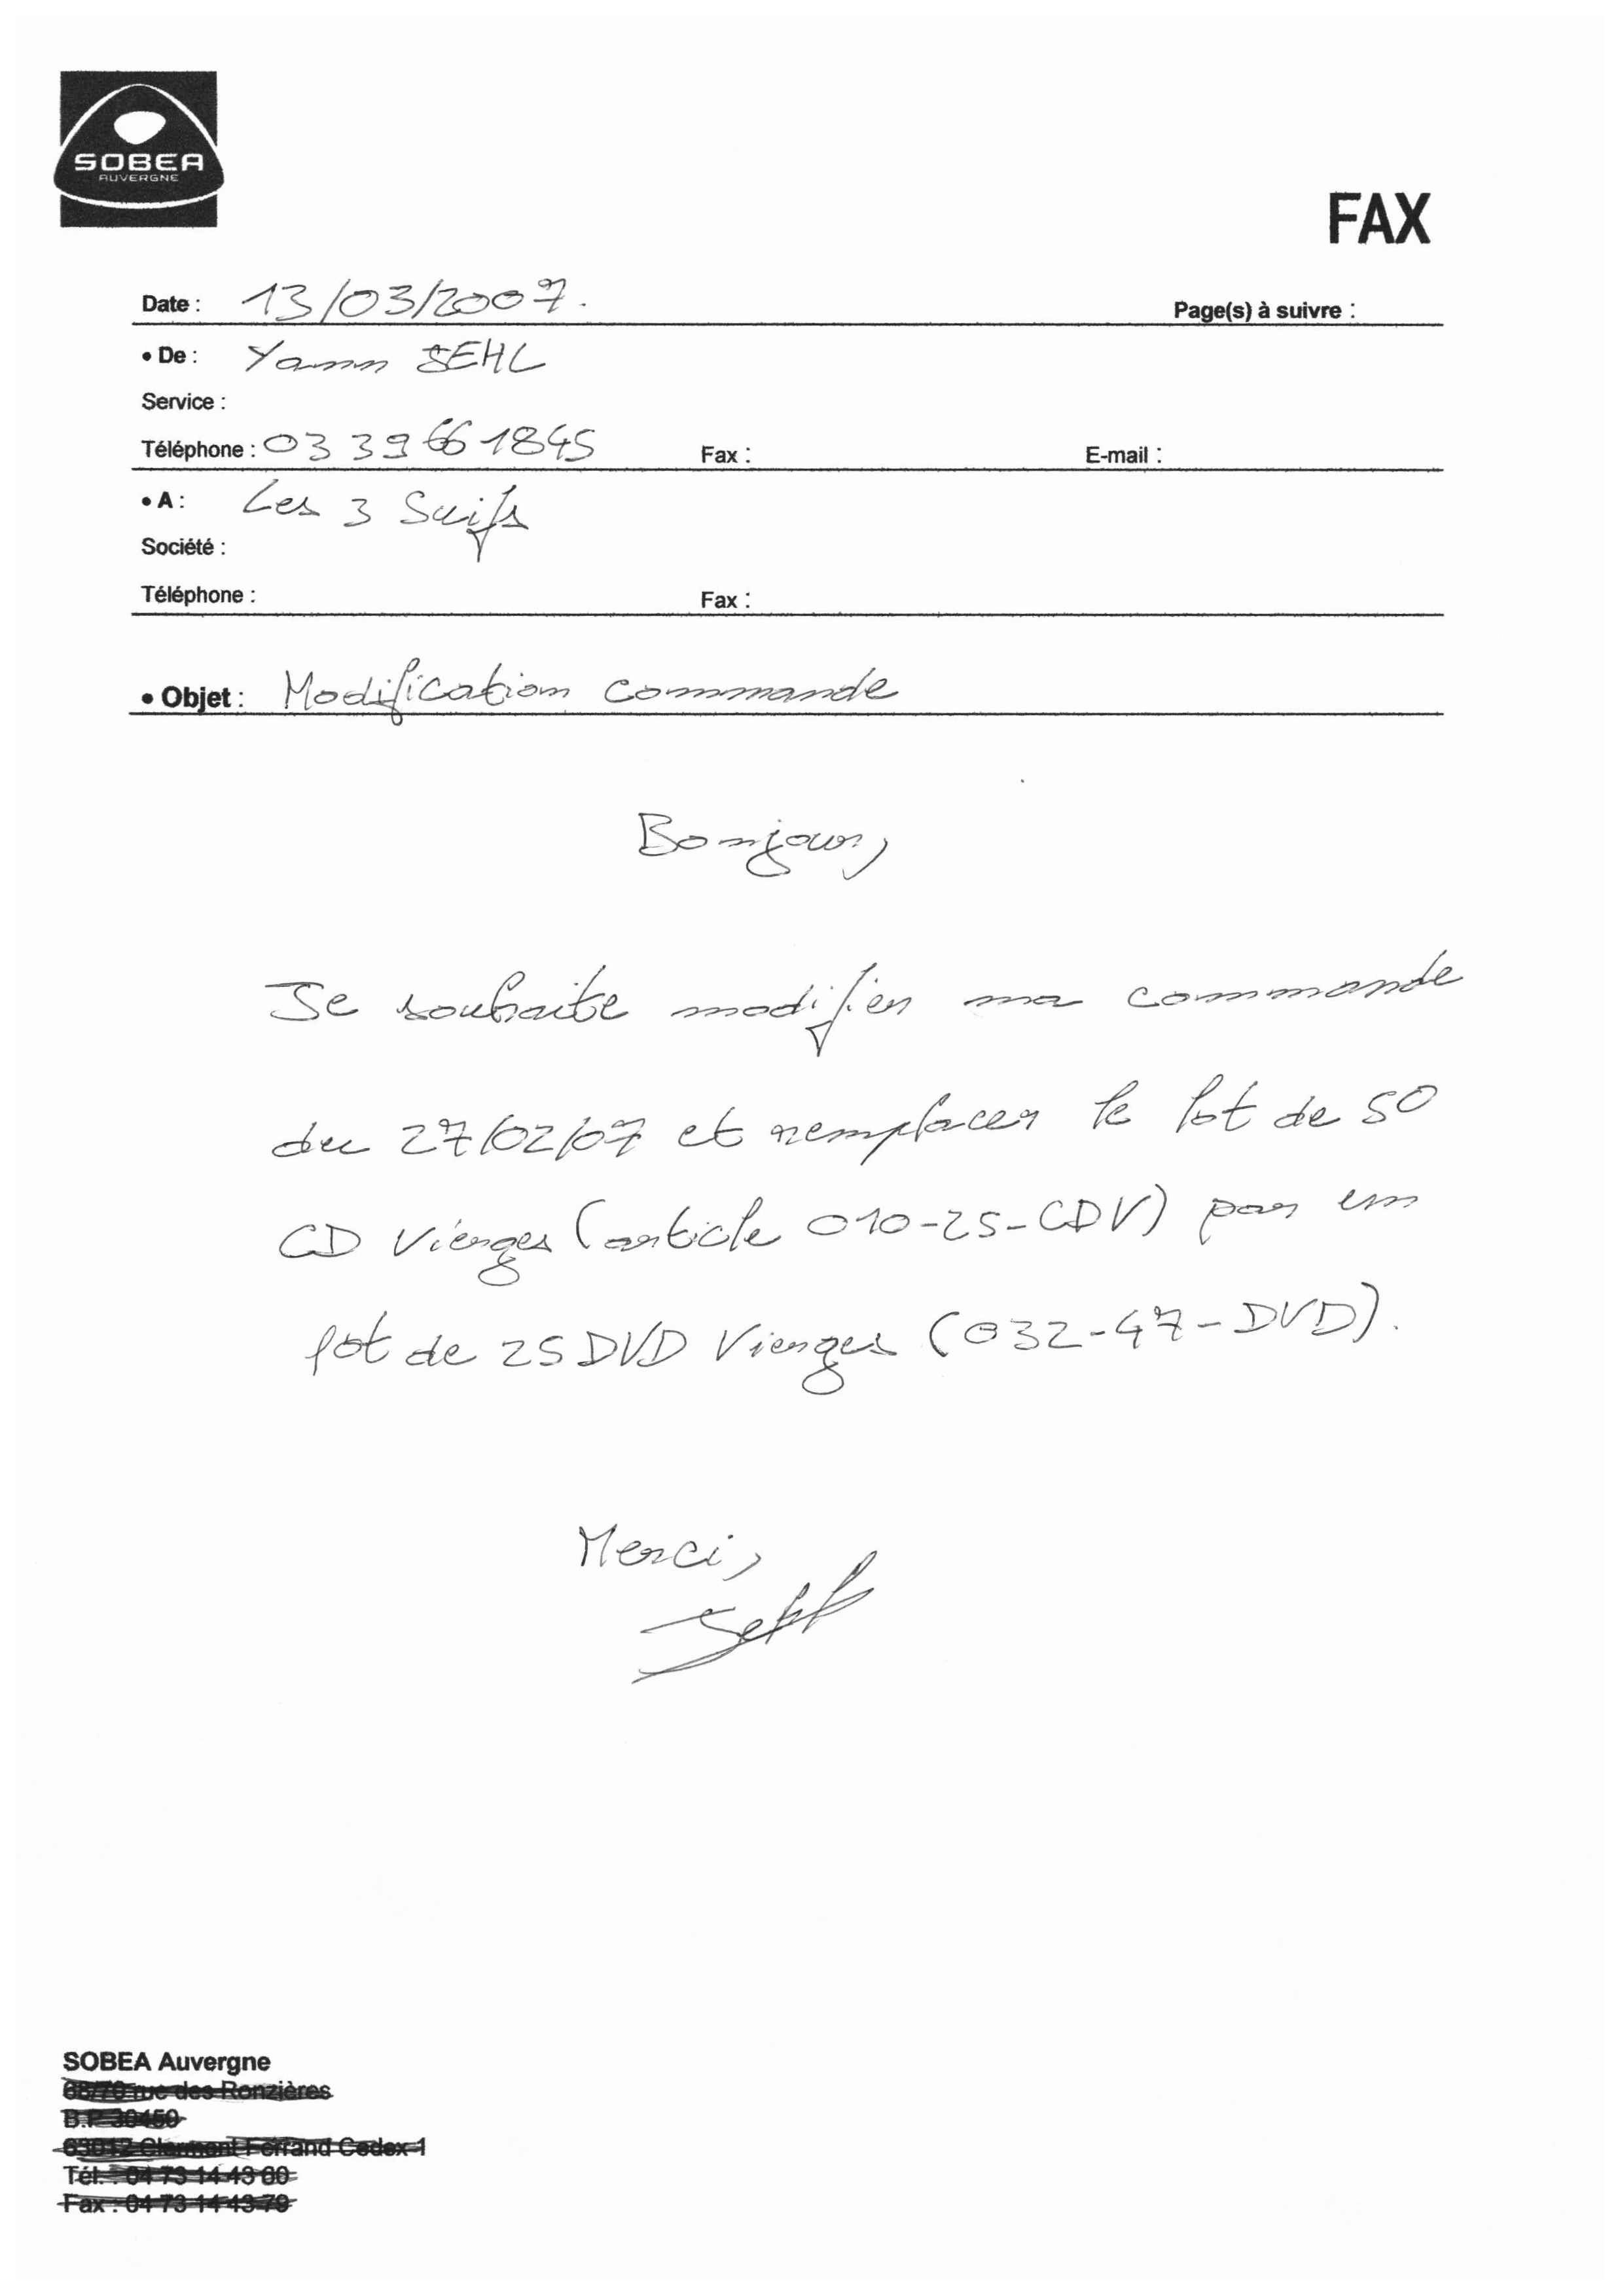 SOBEA
AUVERGNE
FAX
Date : 13/03/2007. Page(s) à suivre :
• De : Yann SEHL
Service :
Téléphone : 03 39 66 1845 Fax : E-mail :
• A : Les 3 Suifs
Société :
Téléphone : Fax :
• Objet : Modification commande
Bonjour,
Je souhaite modifier ma commande
du 27/02/07 et remplacer le lot de 50
CD Vierges (article 010-25-CDV) par un
lot de 25 DVD Vierges (032-47-DVD).
Merci,
Sehl
SOBEA Auvergne
68/70 rue des Ronzières
B.P 30450
63012 Clermont Ferrand Cedex 1
Tél. : 04 73 14 43 80
Fax : 04 73 14 43 79